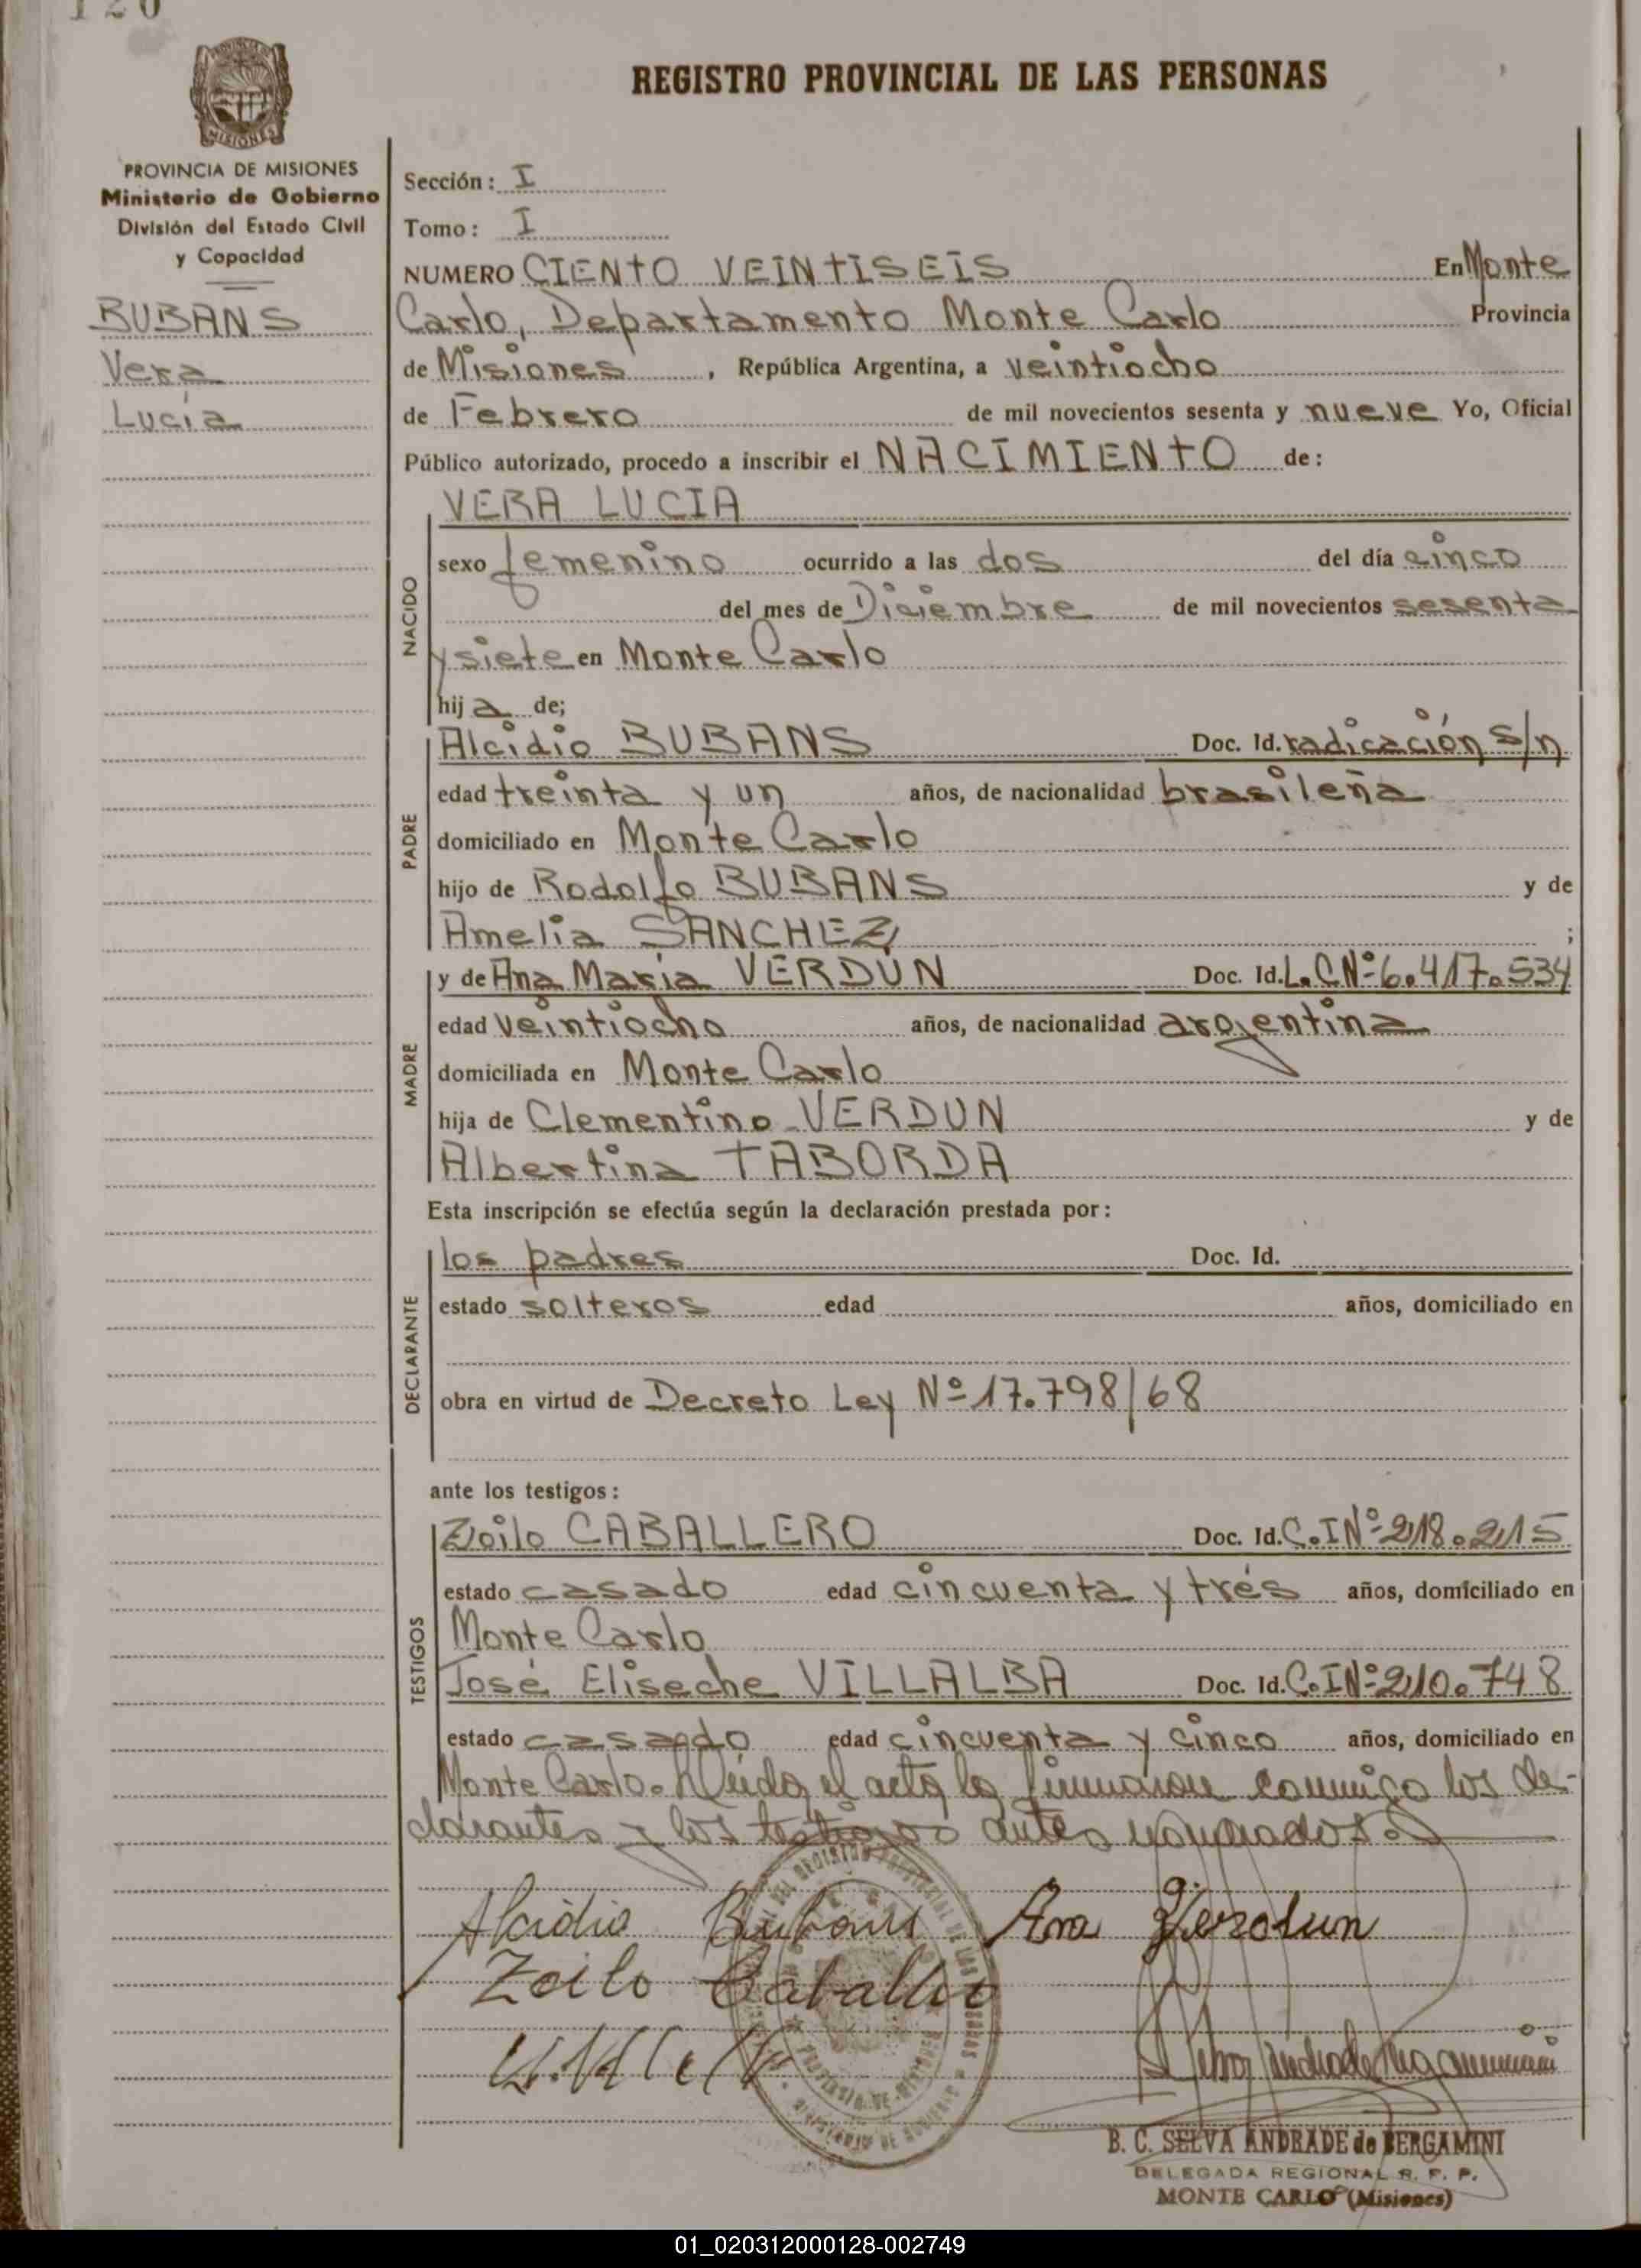 REGISTRO PROVINCIAL DE LAS PERSONAS
MISIONES
PROVINCIA DE MISIONES
Ministerio de Gobierno
División del Estado Civil
y Capacidad
BUBANS
Vera
Lucía
Sección: I
Tomo: I
NUMERO CIENTO VEINTISEIS En Monte
Carlo, Departamento Monte Carlo Provincia
de Misiones, República Argentina, a veintiocho
de Febrero de mil novecientos sesenta y nueve Yo, Oficial
Público autorizado, procedo a inscribir el NACIMIENTO de:
NACIDO
VERA LUCIA
sexo femenino ocurrido a las dos del día cinco
del mes de Diciembre de mil novecientos sesenta
y siete en Monte Carlo
hij a de;
PADRE
Alcidio BUBANS Doc. Id. radicación s/n
edad treinta y un años, de nacionalidad brasileña
domiciliado en Monte Carlo
hijo de Rodolfo BUBANS y de
Amelia SANCHEZ ;
MADRE
y de Ana María VERDÚN Doc. Id. L.C Nº 6.417.534
edad veintiocho años, de nacionalidad argentina
domiciliada en Monte Carlo
hija de Clementino VERDUN y de
Albertina TABORDA
Esta inscripción se efectúa según la declaración prestada por:
DECLARANTE
los padres Doc. Id.
estado solteros edad años, domiciliado en
obra en virtud de Decreto Ley Nº 17.798/68
ante los testigos:
TESTIGOS
Zoilo CABALLERO Doc. Id. C.I Nº 218.215
estado casado edad cincuenta y trés años, domiciliado en
Monte Carlo
José Eliseche VILLALBA Doc. Id. C.I Nº 210.748
estado casado edad cincuenta y cinco años, domiciliado en
Monte Carlo. Leida el acta la firmaron conmigo los de-
clarantes y los testigos antes nombrados.
Alcidio Bubans Ana Verdun
Zoilo Caballero
B. C. SELVA ANDRADE de BERGAMINI
DELEGADA REGIONAL R. P. P.
MONTE CARLO (Misiones)
01_020312000128-002749